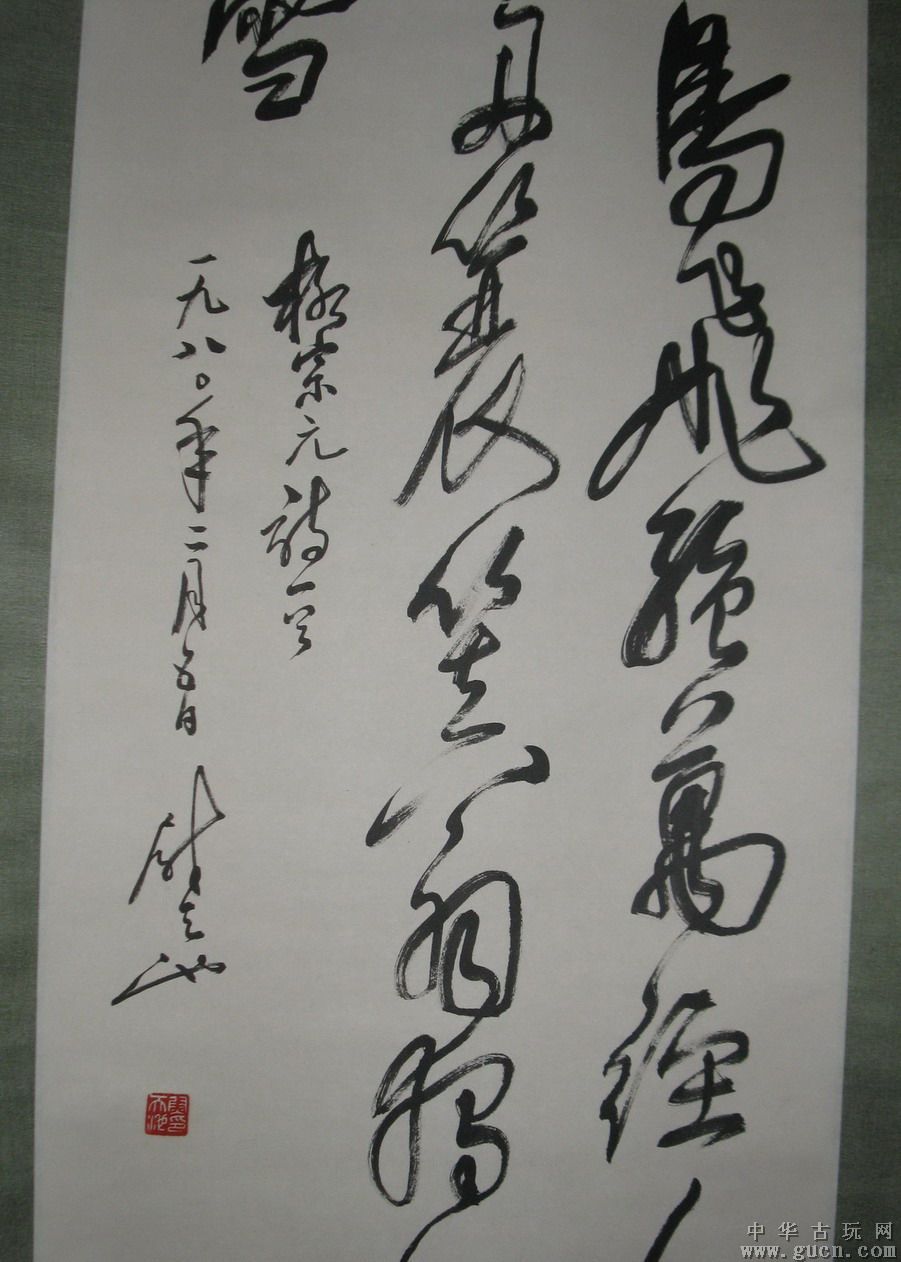 鳥飛絕萬徑人
舟簑笠翁獨
雪
柳宗元詩一首
一九八〇年二月五日
尉天池
中华古玩网
www.gucn.com